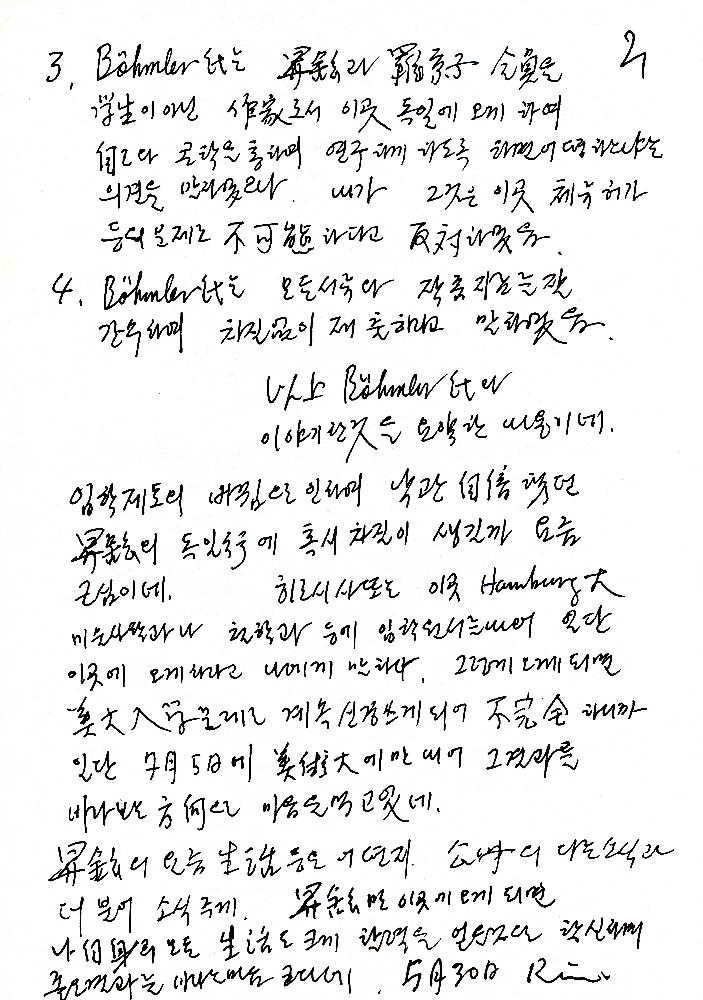 2
3. Böhmler氏는 昇鉉과 羅京子 会員을
学生이 아닌 作家로서 이곳 독일에 오게 하여
自己와 공학을 통하여 연구하게 하도록 하면 어떠하느냐는
의견을 말하였으나. 내가 그것은 이곳 체류허가
등의 문제로 不可能하다고 反対하였음.
4. Böhmler氏는 모든 서류와 작품
하며 차질없이 제출하라고 말하였음.
以上 Böhmler氏와
이야기한 것을 요약한 내용이네.
입학제도의 바뀜으로 인하여 낙관 自信했던
의 독일유학에 혹시 차질이 생길까 요즘
근심이네. 히로시 사또는 이곳 Hamburg大
미술사학과나 철학과 등에 입학원서를 내어 일단
이곳에 오게 하라고 나에게 말하나. 그렇게 오게 되면
美大入学문제로 계속 신경쓰게 되어 不完全하니까
일단 7月5日에 美術大에만 내어 그 결과를
바라보는 方向으로 마음을 먹고 있네.
의 요즘 生活 등은 어떤지. 의 다른 소식과
더불어 소식 주게. 만 이곳에 오게 되면
나 自身의 모든 生活도 크게 활력을 얻겠다 확신하며
좋은 결과를 바라는 마음 크다네. 5月30日